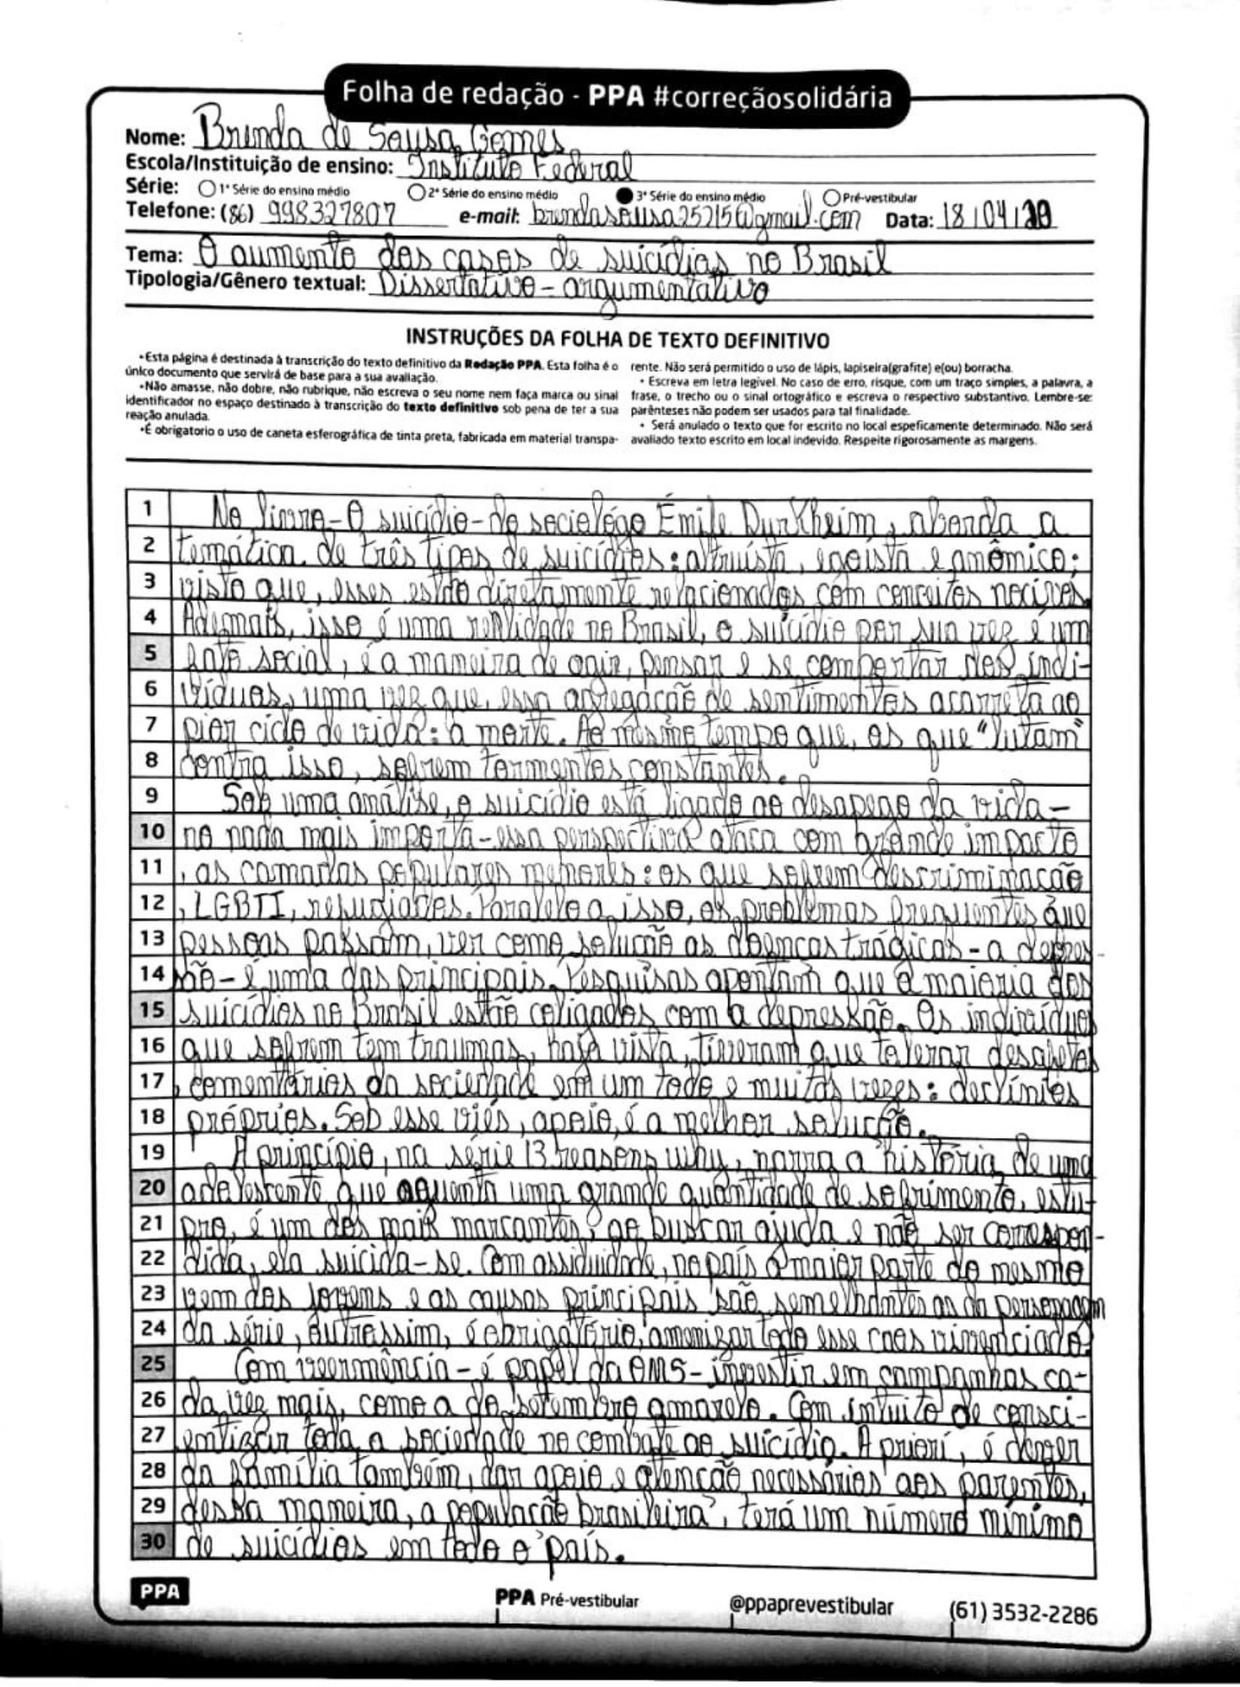 Folha de redação - PPA #correçãosolidária
Nome: Brenda de Sousa Gomes
Escola/Instituição de ensino: Instituto Federal
Série: 1ª Série do ensino médio 2ª Série do ensino médio 3ª Série do ensino médio Pré-vestibular
Telefone: (86) 998327807 e-mail: brendasousa25215@gmail.com Data: 18/04/20
Tema: O aumento dos casos de suicídios no Brasil
Tipologia/Gênero textual: Dissertativo-argumentativo
INSTRUÇÕES DA FOLHA DE TEXTO DEFINITIVO
•Esta página é destinada à transcrição do texto definitivo da Redação PPA. Esta folha é o
único documento que servirá de base para a sua avaliação.
•Não amasse, não dobre, não rubrique, não escreva o seu nome nem faça marca ou sinal
identificador no espaço destinado à transcrição do texto definitivo sob pena de ter a sua
reação anulada.
•É obrigatorio o uso de caneta esferográfica de tinta preta, fabricada em material transpa-
rente. Não será permitido o uso de lápis, lapiseira(grafite) e(ou) borracha.
• Escreva em letra legível. No caso de erro, risque, com um traço simples, a palavra, a
frase, o trecho ou o sinal ortográfico e escreva o respectivo substantivo. Lembre-se:
parênteses não podem ser usados para tal finalidade.
• Será anulado o texto que for escrito no local espeficamente determinado. Não será
avaliado texto escrito em local indevido. Respeite rigorosamente as margens.
1 No livro-O suicídio-do sociológo Émile Durkheim, aborda a
2 temática de três tipos de suicídios: altruísta, egoísta e anômico;
3 visto que, esses estão diretamente relacionados com conceitos nocivos.
4 Ademais, isso é uma realidade no Brasil, o suicídio por sua vez é um
5 fato social, é a maneira de agir, pensar e se comportar dos indi-
6 víduos, uma vez que, essa agregação de sentimentos acarreta ao
7 pior ciclo de vida: a morte. Ao mesmo tempo que, os que "lutam"
8 contra isso, sofrem tormentos constantes.
9 Sob uma análise, o suicídio está ligado ao desapego da vida-
10 no nada mais importa-essa perspectiva ataca com grande impacto
11 , as camadas populares menores: os que sofrem descriminação
12 , LGBTI, refugiados. Paralelo a isso, os problemas frequentes que
13 pessoas passam, ver como solução as doenças trágicas-a depres-
14 são-é uma das principais. Pesquisas apontam que a maioria dos
15 suicídios no Brasil estão coligados com a depressão. Os indivíduos
16 que sofrem tem traumas, haja vista, tiveram que tolerar desafetos
17 , comentários da sociedade em um todo e muitas vezes: declínios
18 próprios. Sob esse viés, apoio, é a melhor solução.
19 A princípio, na série 13 reasons why, narra a história de uma
20 adolescente que aguenta uma grande quantidade de sofrimento, estu-
21 pro, é um dos mais marcantes, ao buscar ajuda e não ser correspon-
22 dida, ela suicida-se. Com assiduidade, no país a maior parte do mesmo
23 vem dos jovens e as causas principais são semelhantes as da personagem
24 da série, outrossim, é obrigatório, amenizar todo esse caos vivenciado.
25 Com veermência-é papel da OMS-investir em campanhas ca-
26 da vez mais, como a do setembro amarelo. Com intuito de consci-
27 entizar toda a sociedade no combate ao suicídio. A priori, é dever
28 da família também, dar apoio e atenção necessários aos parentes,
29 dessa maneira, a população brasileira, terá um número mínimo
30 de suicídios em todo o país.
PPA
PPA Pré-vestibular
@ppaprevestibular
(61) 3532-2286